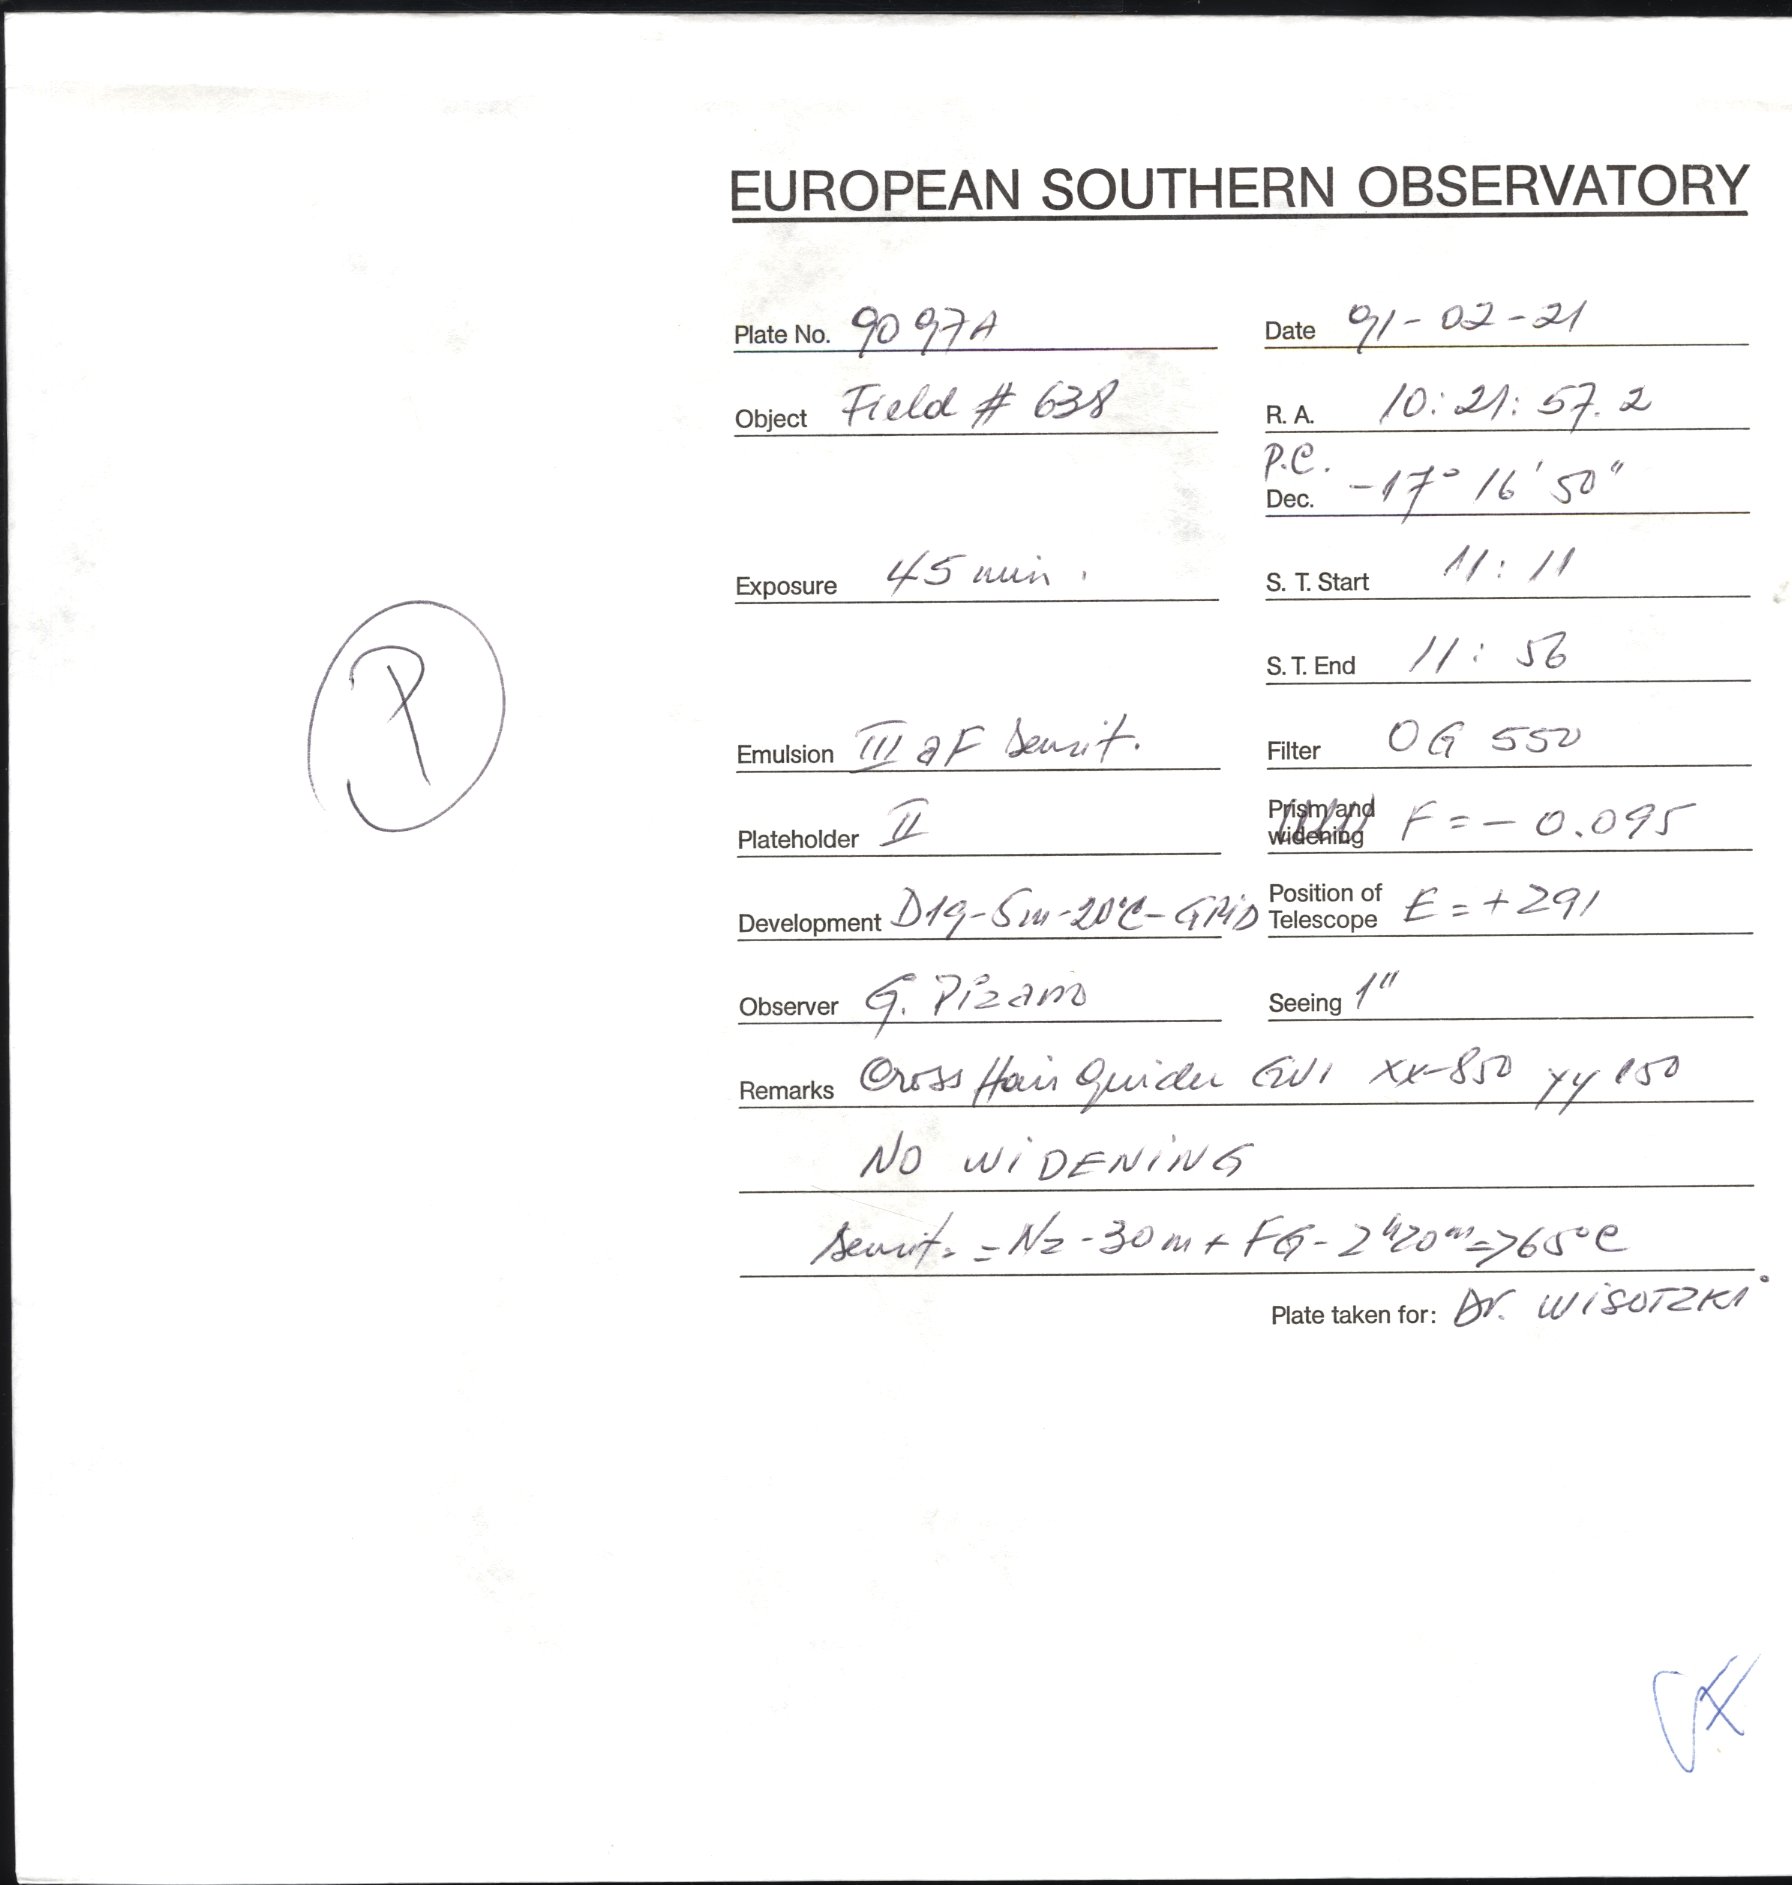 EUROPEAN SOUTHERN OBSERVATORY
Plate No. 9097A Date 91-02-21
Object Field # 638 R. A. 10:21:57.2
P.C.
Dec. -17° 16' 50"
Exposure 45 min. S. T. Start 11:11
S. T. End 11:56
P
Emulsion III aF Sensit. Filter OG 550
Plateholder II Prism and widening F = - 0.095
Development D19-5m-20°C- Position of Telescope E = +291
Observer G. Pizarro Seeing 1"
Remarks Cross Hair Guider GV1 xx-850 yy 150
NO WIDENING
Sensit. = N2 -30m + FG - 2h20m => 65°C
Plate taken for: Dr. WISOTZKI